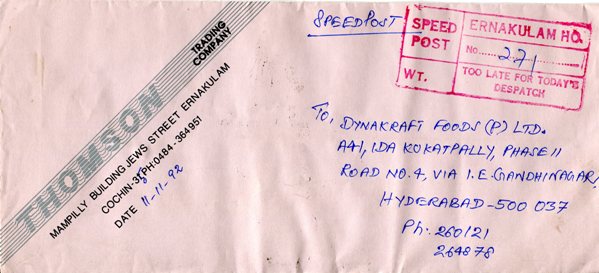 THOMSON
TRADING
COMPANY
MAMPILLY BUILDING JEWS STREET ERNAKULAM
COCHIN-31 PH:0484-364951
DATE 11-11-92
SPEEDPOST
SPEED
POST
WT.
ERNAKULAM HO.
No. 271
TOO LATE FOR TODAY'S
DESPATCH
To,
DYNAKRAFT FOODS (P) LTD.
A41, IDA KOKATPALLY, PHASE 11
ROAD NO. 4, VIA I.E. GANDHINAGAR,
HYDERABAD-500 037
Ph: 260121
264878